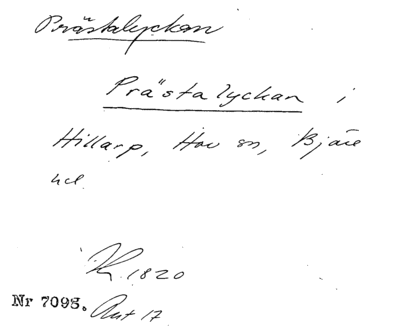 Prästalyckan
Prästalyckan i
Hillarp, Hov sn, Bjäre
hd.
1820
Nr 7093. Ant 17